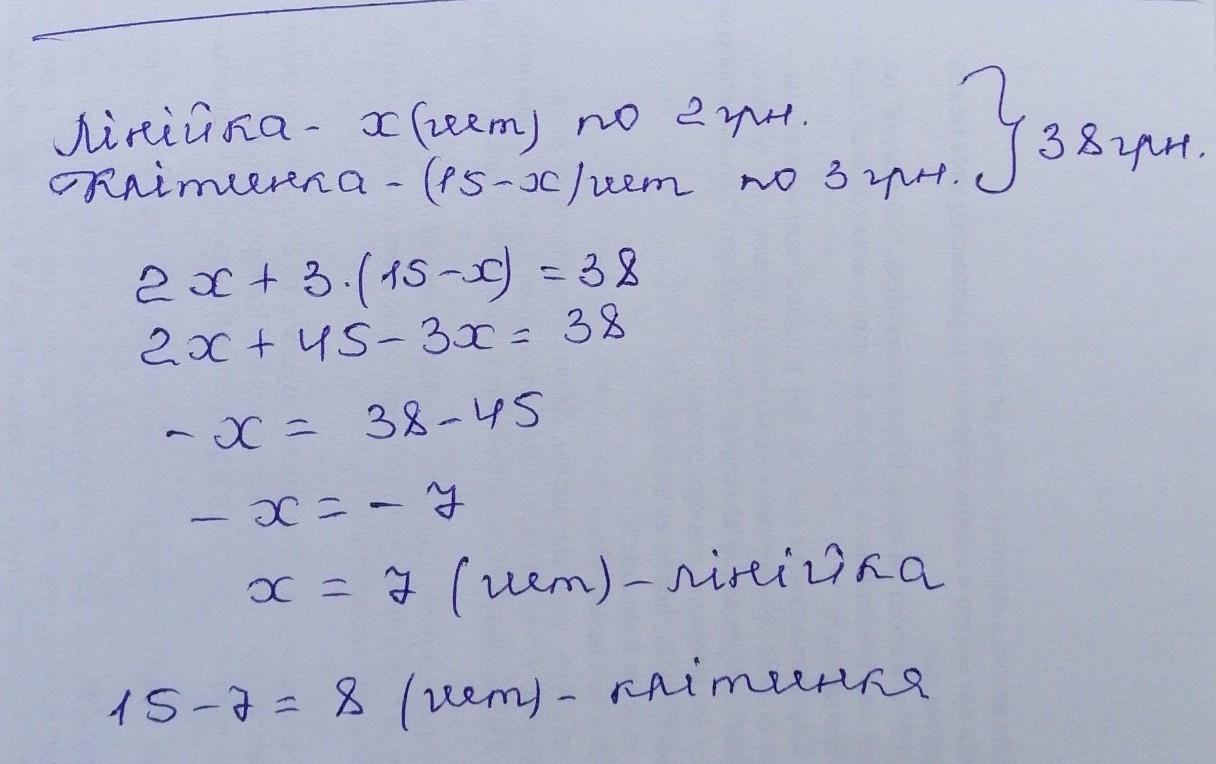 Лінійка - x (шт) по 2 грн.
Клітинка - (15-x) шт по 3 грн. } 38 грн.
2x + 3·(15-x) = 38
2x + 45 - 3x = 38
- x = 38 - 45
- x = - 7
x = 7 (шт) - лінійка
15 - 7 = 8 (шт) - клітинка